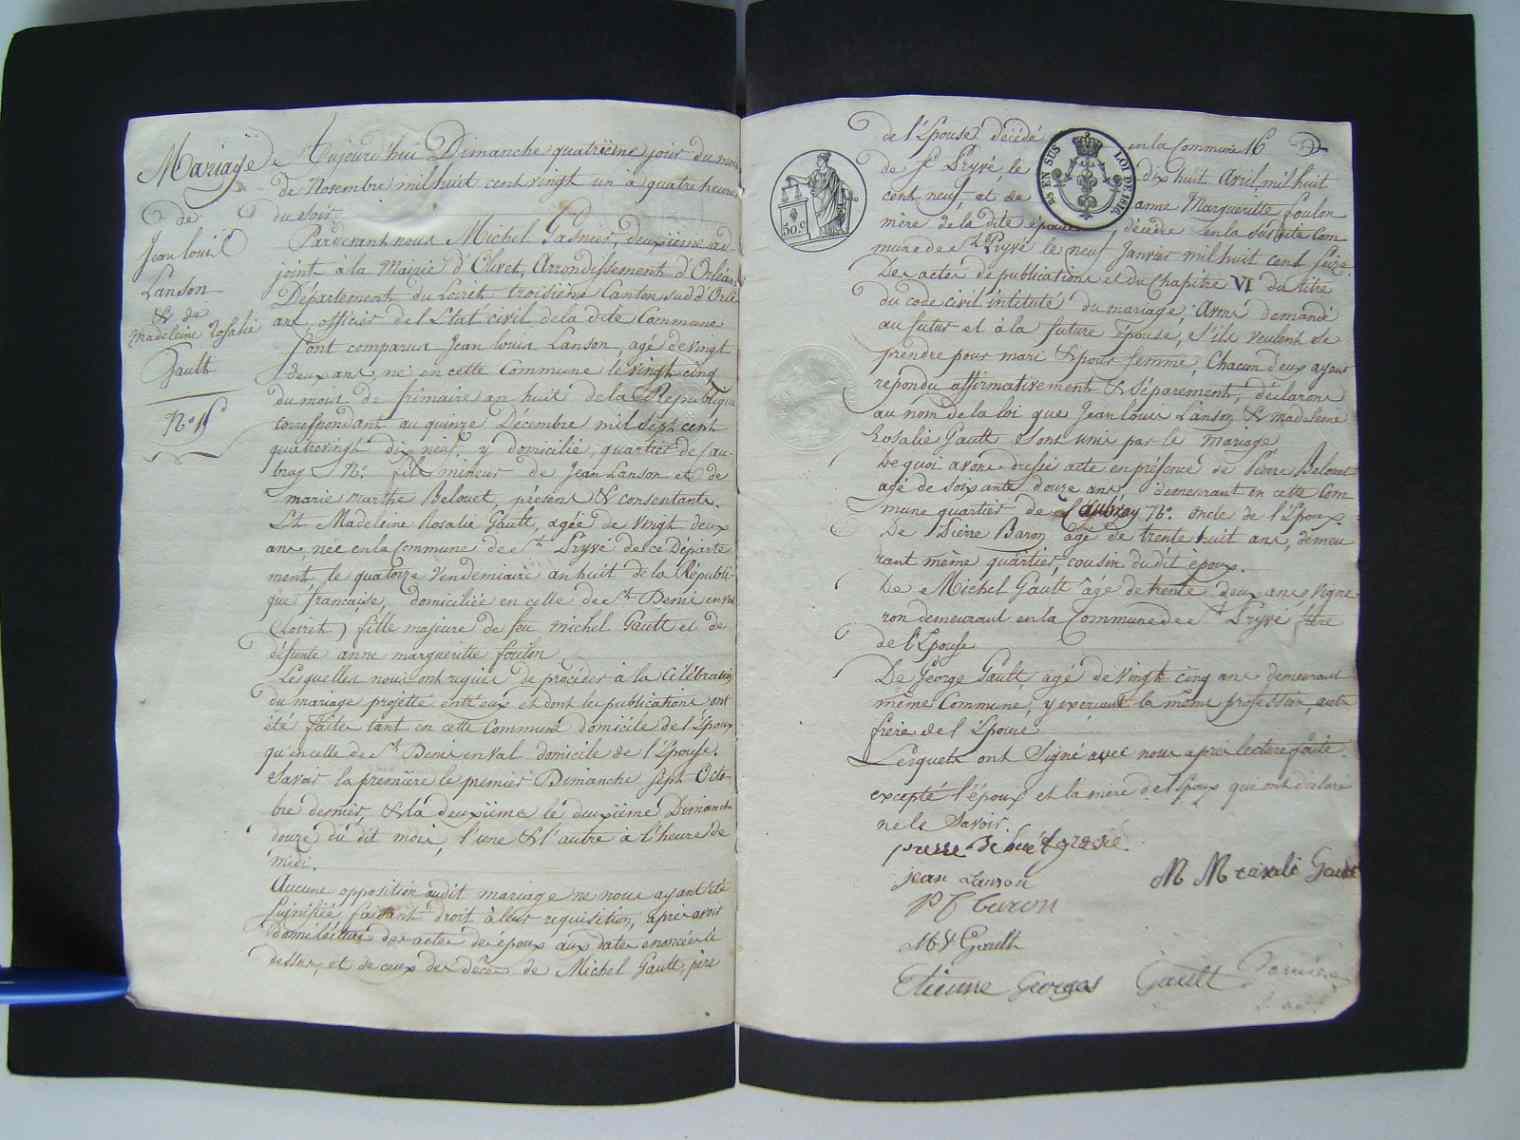 Mariage
de
Jean louis
Lanson
& de
Madeleine Rosalie
Gault
Aujourd'hui Dimanche quatrième jour du mois
de Novembre mil huit cent vingt un à quatre heures
du soir
Pardevant nous Michel deuxième ad
joint à la Mairie d'Olivet, Arrondissement d'Orléans
Département du Loiret troisième Canton sud d'Orlé
ans, officier de l'Etat civil de la dite Commune
Sont comparus Jean louis Lanson, agé de vingt
deux ans né en cette Commune le vingt cinq
du mois de frimaire an huit de la République
correspondant au quinze Décembre mil sept cent
quatrevingt dix neuf, y domicilié, quartier de Cau-
bray N°. fils mineur de Jean Lanson et de
marie marthe Belouet, présens & consentants.
Et Madeleine Rosalie Gault, agée de vingt deux
ans, née en la Commune de St. Pryvé de ce Départe
ment, le quatorze Vendemiaire an huit de la Républi-
que française, domiciliée en celle de St. Denis en val
(Loiret) fille majeure de feu michel Gault et de
défunte anne margueritte foulon
Lesquelles nous ont requis de procéder à la célébration
du mariage projetté entr'eux et dont les publications ont
été faites tant en cette Commune domicile de l'Epoux
qu'en celle de St. Denis en val domicile de l'Epouse.
Savoir la première le premier Dimanche sept Octo-
bre dernier, & la deuxième le deuxième Dimanche
douze du dit mois, l'une & l'autre à l'heure de
midi.
Aucune opposition audit mariage ne nous ayant été
signifiée, faisant droit à leur requisition, après avoir
donné lecture des actes des époux aux dates énoncées ci
dessus, et de ceux des décès de Michel Gault, père
de l'Epouse décédé en la Commune 16
de St Pryvé, le dix huit Avril mil huit
cent neuf, et de anne Margueritte foulon
mère de la dite épouse, décédée en la susdite Com
mune de St. Pryvé le neuf Janvier mil huit cent seize.
Des actes de publications et du Chapitre VI du titre
du code civil intitulé du mariage, Avons demandé
au futur et à la future épouse, s'ils veulent se
prendre pour mari & pour femme, Chacun d'eux ayant
repondu affirmativement & séparément, déclarons
au nom de la loi que Jean louis Lanson & madeleine
Rosalie Gault sont unis par le mariage
De quoi avons dressé acte en présence de Pierre Belouet
agé de soixante douze ans demeurant en cette Com
mune quartier de Caubray N°. oncle de l'Epoux.
De Pierre Baron agé de trente huit ans, demeu
rant même quartier, cousin du dit époux.
De Michel Gault âgé de trente deux ans, vigne
ron demeurant en la Commune de St. Pryvé frère
de l'Epouse
De George Gault agé de vingt cinq ans demeurant
même Commune, y exerçant la même profession, autre
frère de l'Epouse
Lesquels ont Signé avec nous après lecture faite.
excepté l'époux et la mère de l'Epoux qui ont déclaré
ne le Savoir.
jean Lanson
M M rosalie Gault
M V Gault
Etienne Georges Gault
50.c
LOI DE 1816